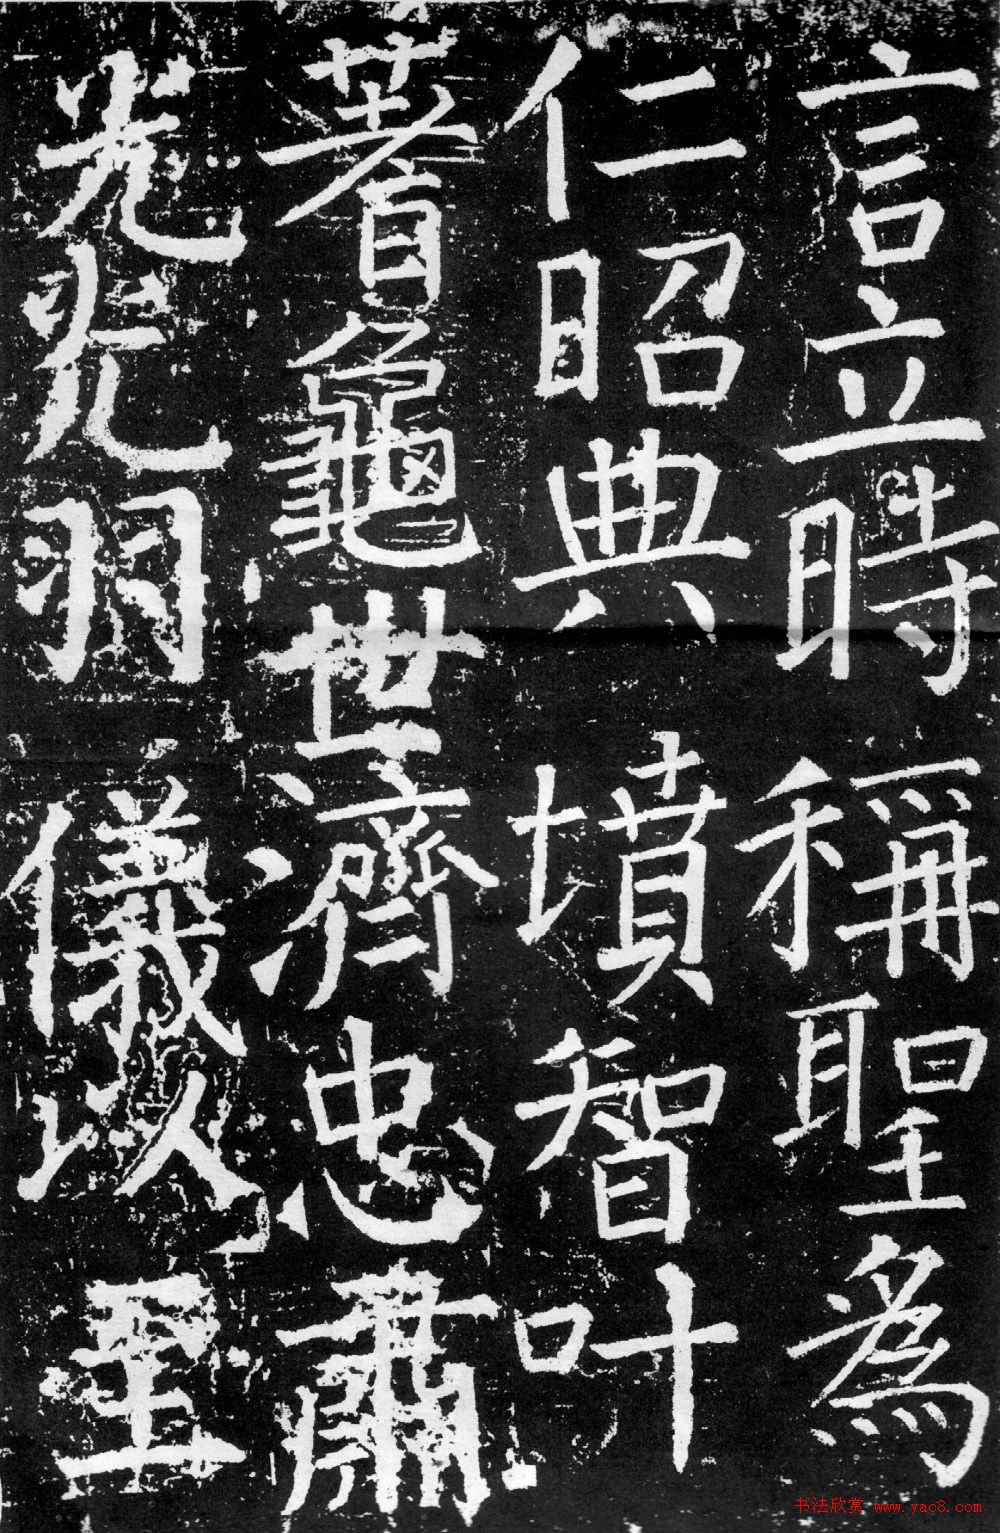 言立時稱聖為
仁昭典墳智叶
著龜世濟忠肅
光光羽儀以至
书法欣赏 www.yac8.com